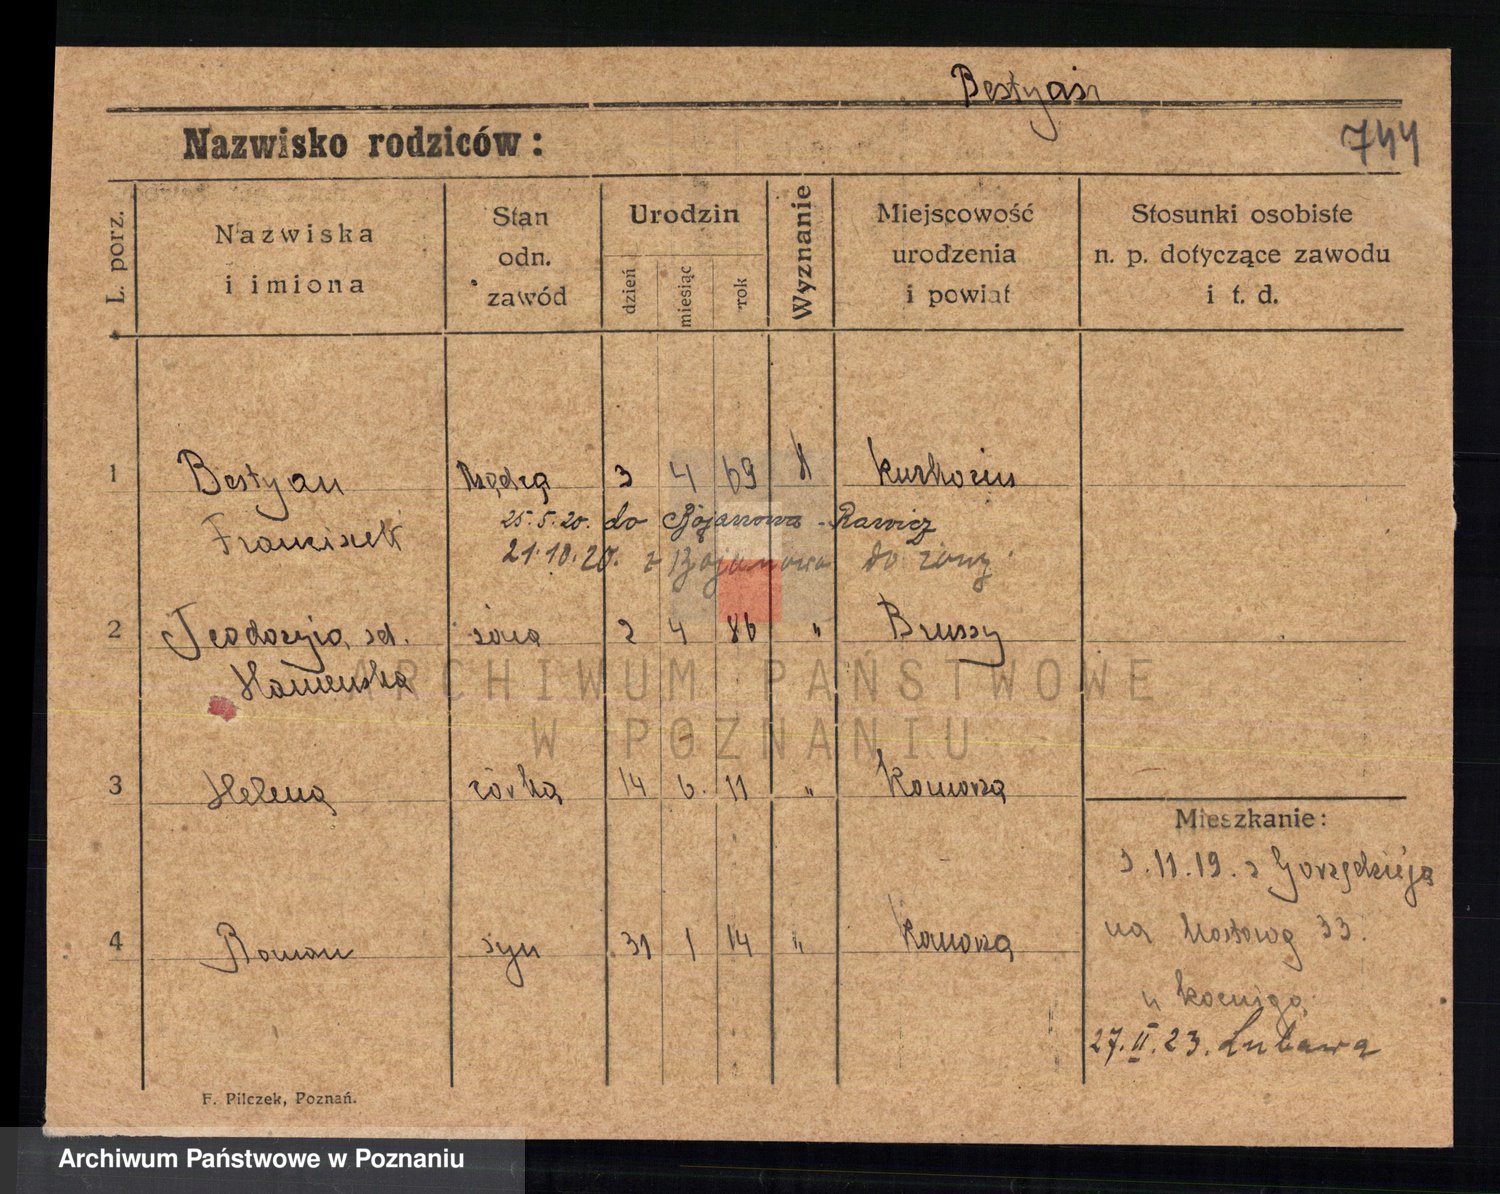 Bestyan
Nazwisko rodziców:
744
L. porz.
Nazwiska
i imiona
Stan
odn.
zawód
Urodzin
dzień
miesiąc
rok
Wyznanie
Miejscowość
urodzenia
i powiat
Stosunki osobiste
n. p. dotyczące zawodu
i t. d.
1 Bestyan 3 4 69
Franciszek
25.5.20. do Bojanowa - Rawicz
21.10.20. z Bojanowa do żony
2 Teodozyja żona 2 4 86 " Brussy
3 Helena córka 14 6. 11 " Komorza
4 Roman syn 31 1 14 " Komorza
Mieszkanie:
3.11.19. z
na Mostową 33.
u Koeniga
27.II.23. Lubawa
F. Pilczek, Poznań.
ARCHIWUM PAŃSTWOWE
W POZNANIU
Archiwum Państwowe w Poznaniu